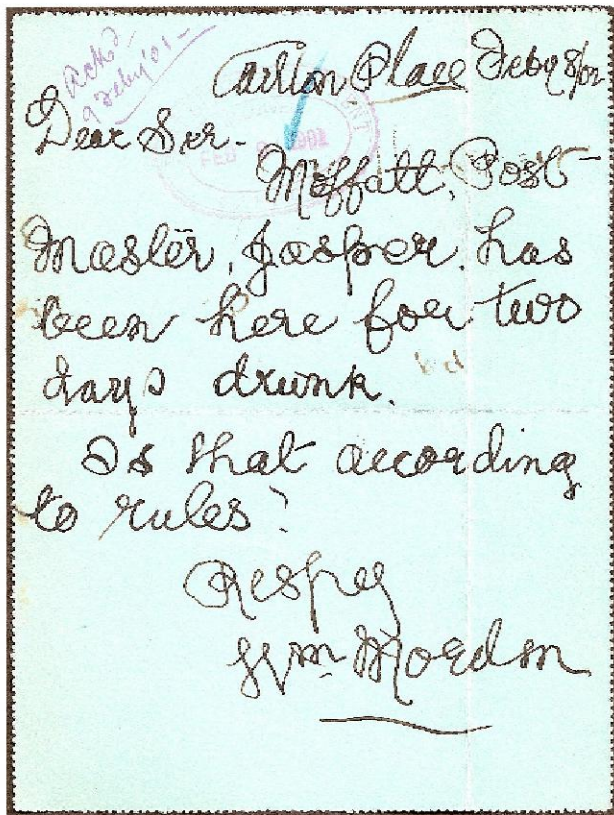 Ackd
9 Feby '01-
Carlton Place Feby 8/02
Dear Sir-
FEB 1902
Moffatt, Post-
Master, Jasper, has
been here for two
days drunk.
Is that according
to rules?
Respy
Wm Mordm